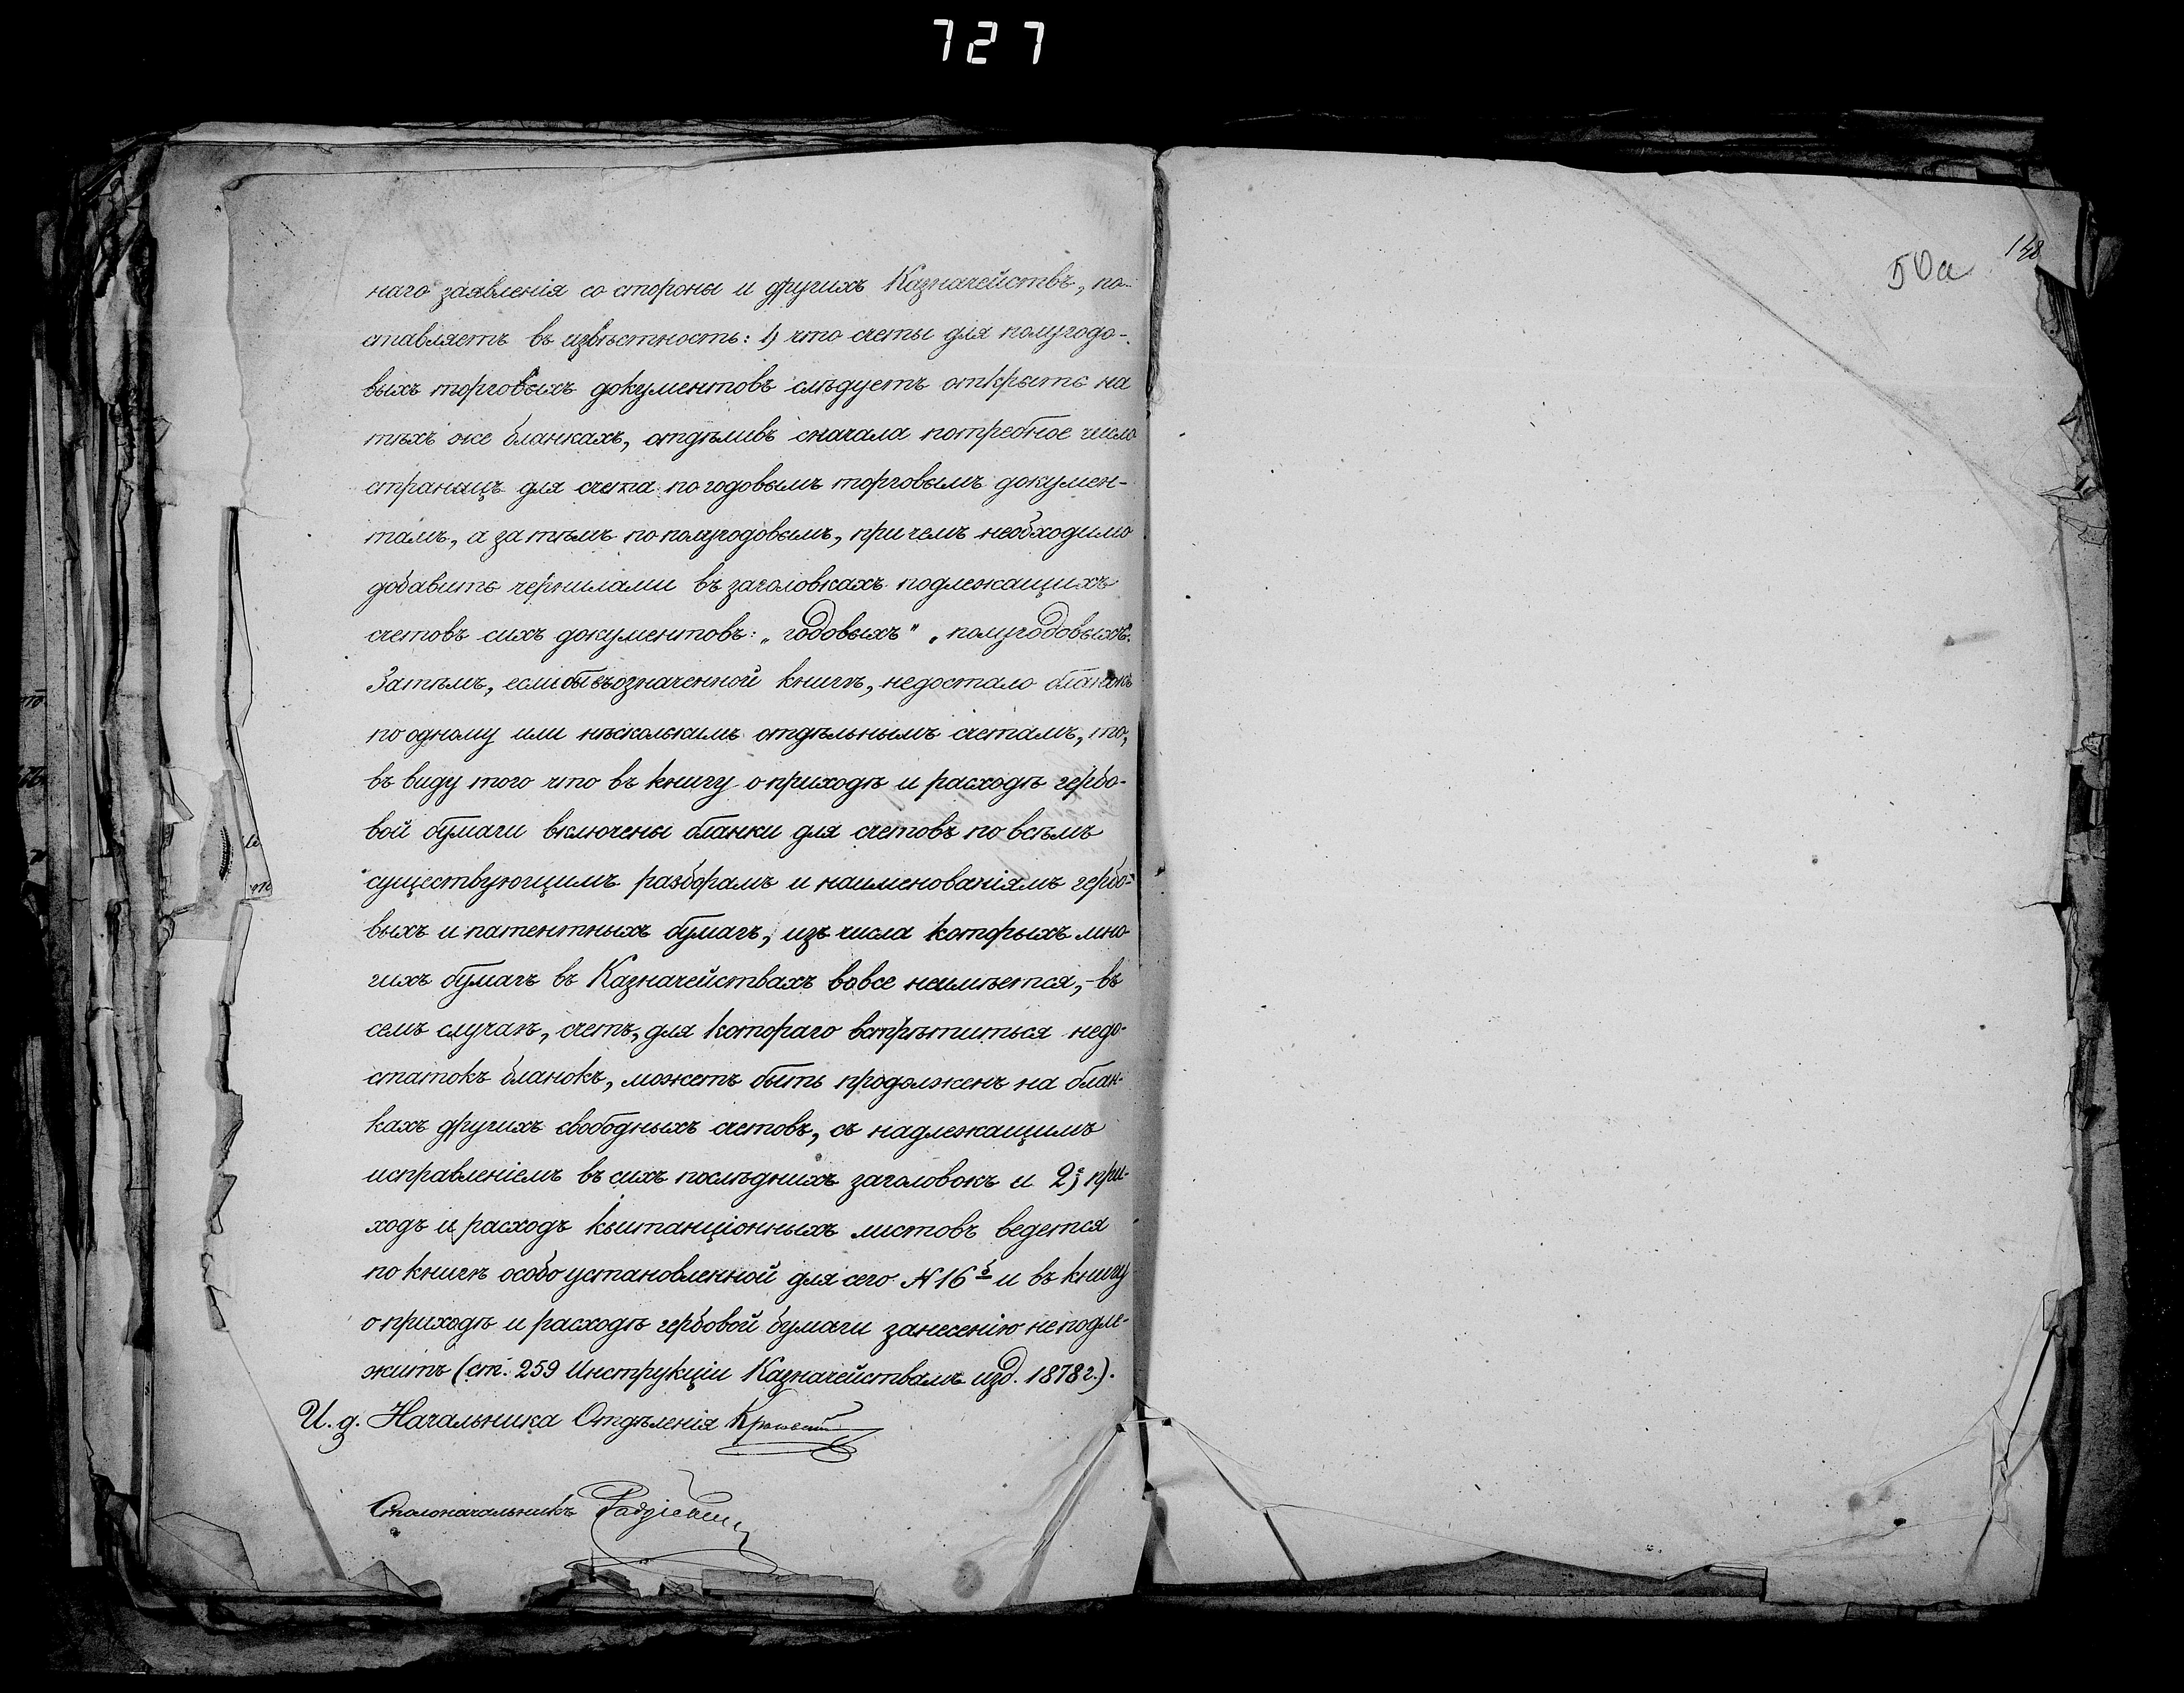 727
50а
148
наго заявленія со стороны и другихъ Казначействъ, по-
ставляетъ въ извѣстность: 1) что счеты для полугодо-
выхъ торговыхъ документовъ слѣдуетъ открыть на
тѣхъ же бланкахъ, отдѣливъ сначала потребное число
страницъ для счета по годовымъ торговымъ докумен-
тамъ, а за тѣмъ по полугодовымъ, при чемъ необходимо
добавить чернилами въ заголовкахъ подлежащихъ
счетовъ сихъ документовъ: „годовыхъ" „полугодовыхъ".
Затѣмъ, если бы въ означенной книгѣ, недостало бланокъ
по одному или нѣсколькимъ отдѣльнымъ счетамъ, то,
въ виду того что въ книгу о приходѣ и расходѣ гербо-
вой бумаги включены бланки для счетовъ по всѣмъ
существующимъ разборамъ и наименованіямъ гербо-
выхъ и патентныхъ бумагъ, изъ числа которыхъ мно-
гихъ бумагъ въ Казначействахъ вовсе неимѣется, - въ
семъ случаѣ, счетъ, для котораго встрѣтиться недо-
статокъ бланокъ, можетъ быть продолженъ на блан-
кахъ другихъ свободныхъ счетовъ, съ надлежащимъ
исправленіемъ въ сихъ послѣднихъ заголовокъ и 2) при-
ходъ и расходъ квитанціонныхъ листовъ ведется
по книгѣ особо установленной для сего № 16 б и въ книгу
о приходѣ и расходѣ гербовой бумаги занесенію не подле-
житъ (ст. 259 Инструкціи Казначействамъ изд. 1878 г.).
И. д. Начальника Отдѣленія
Столоначальникъ Радзіевич